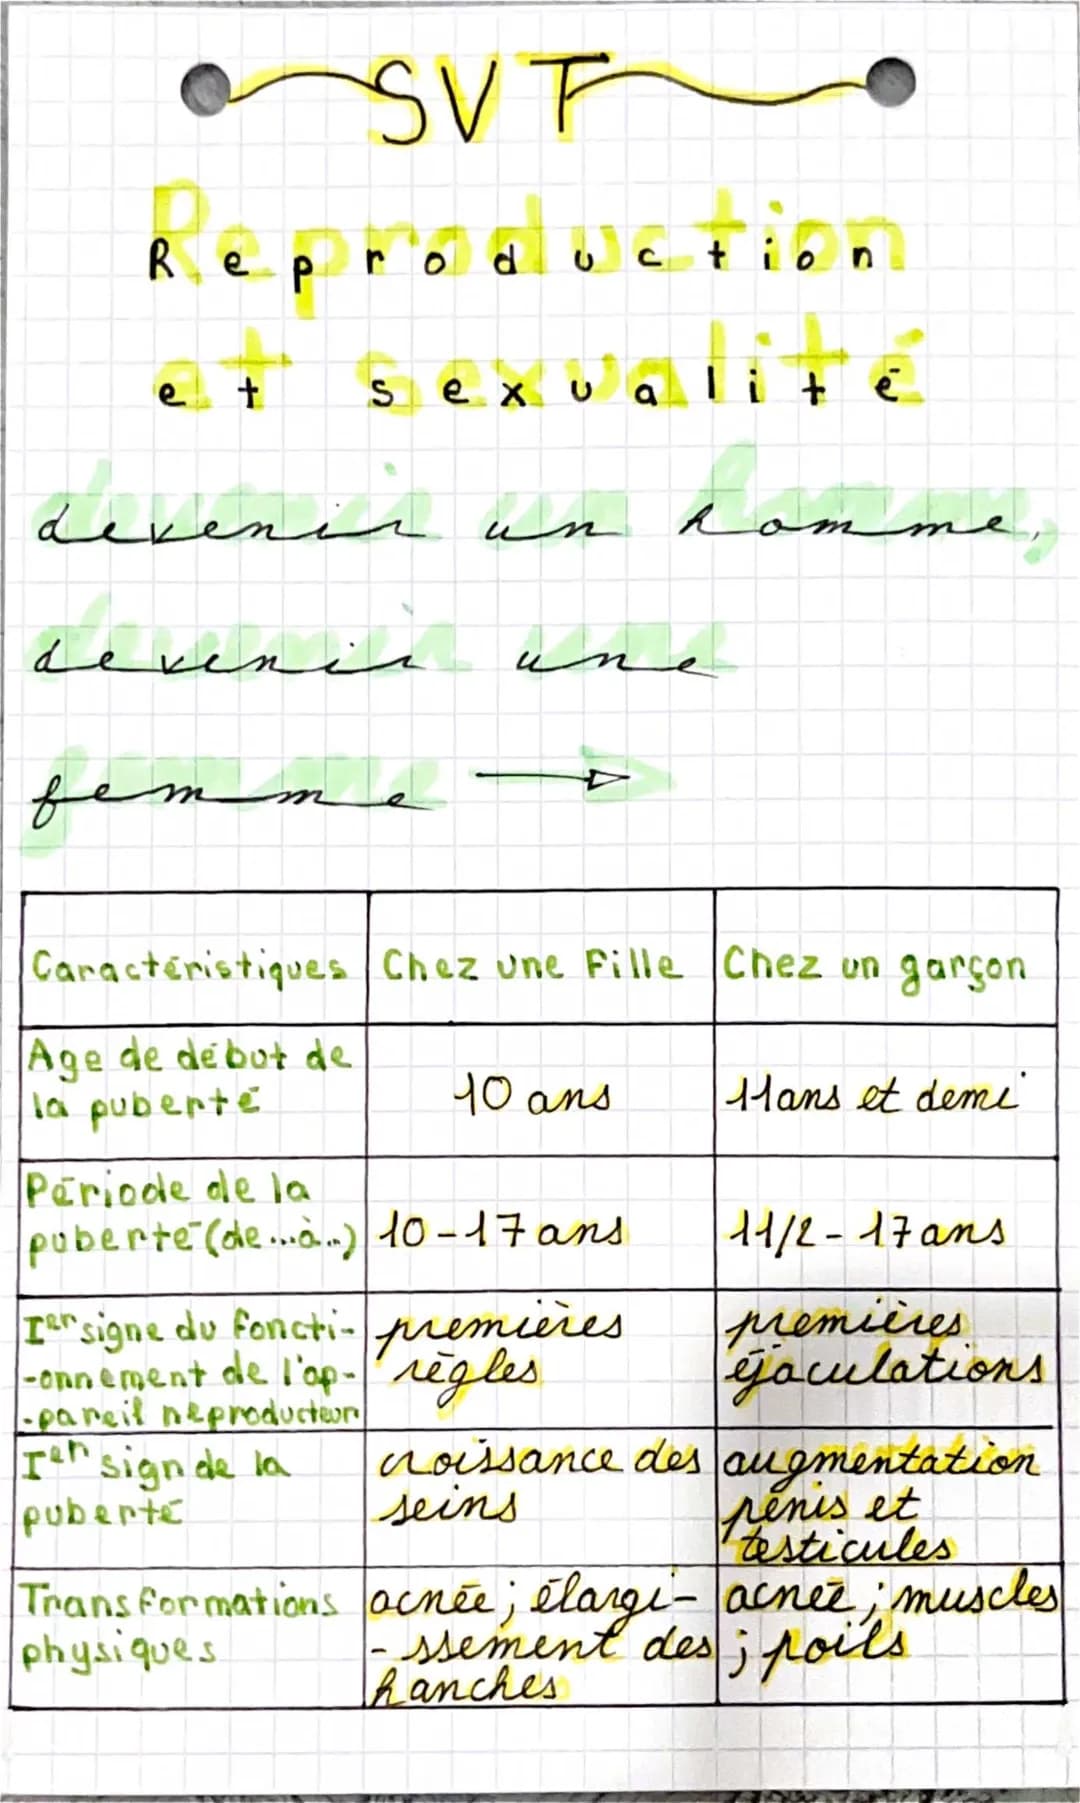 SVT
Reproduction
et sexualité
devenir un homme,
devenir une
femme
Caractéristiques Chez une Fille Chez un garçon
Age de début de
la puberté
10 ans
11ans et demi
Période de la
puberté (de...à...)
10-17 ans
11/2-17 ans
Ier signe du foncti-
-onnement de l'ap-
-pareil reproducteur
premières
règles
premières
éjaculations
Ier sign de la
puberté
croissance des
seins
augmentation
pénis et
testicules
Transformations
physiques
acnée; élargi-
-ssement des
hanches
acnée; muscles
; poils